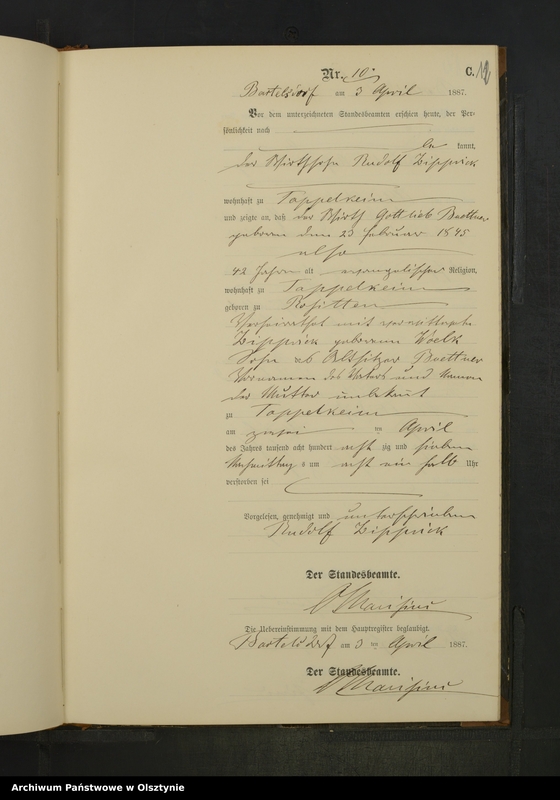 Nr. 10. C. 12
Bartelsdorf am 3 April 1887.
Vor dem unterzeichneten Standesbeamten erschien heute, der Per-
sönlichkeit nach
be kannt,
der Wirthssohn Rudolf Zipprick
wohnhaft zu Tappelkeim
und zeigte an, daß der Wirth Gottlieb Boettner
geboren den 23 Februar 1845
also
42 Jahre alt evangelischer Religion,
wohnhaft zu Tappelkeim
geboren zu Rositten
Verheirathet mit
Zipprick geborene Woelk
Sohn Altsitzer Boettner
Vornamen des Vaters und Namen
der Mutter unbekant
zu Tappelkeim
am zwei ten April
des Jahres tausend acht hundert acht zig und sieben
Nachmittag s um acht ein halb Uhr
verstorben sei
Vorgelesen, genehmigt und unterschrieben
Rudolf Zipprick
Der Standesbeamte.
Die Uebereinstimmung mit dem Hauptregister beglaubigt.
Bartelsdorf am 3 ten April 1887.
Der Standesbeamte.
Archiwum Państwowe w Olsztynie